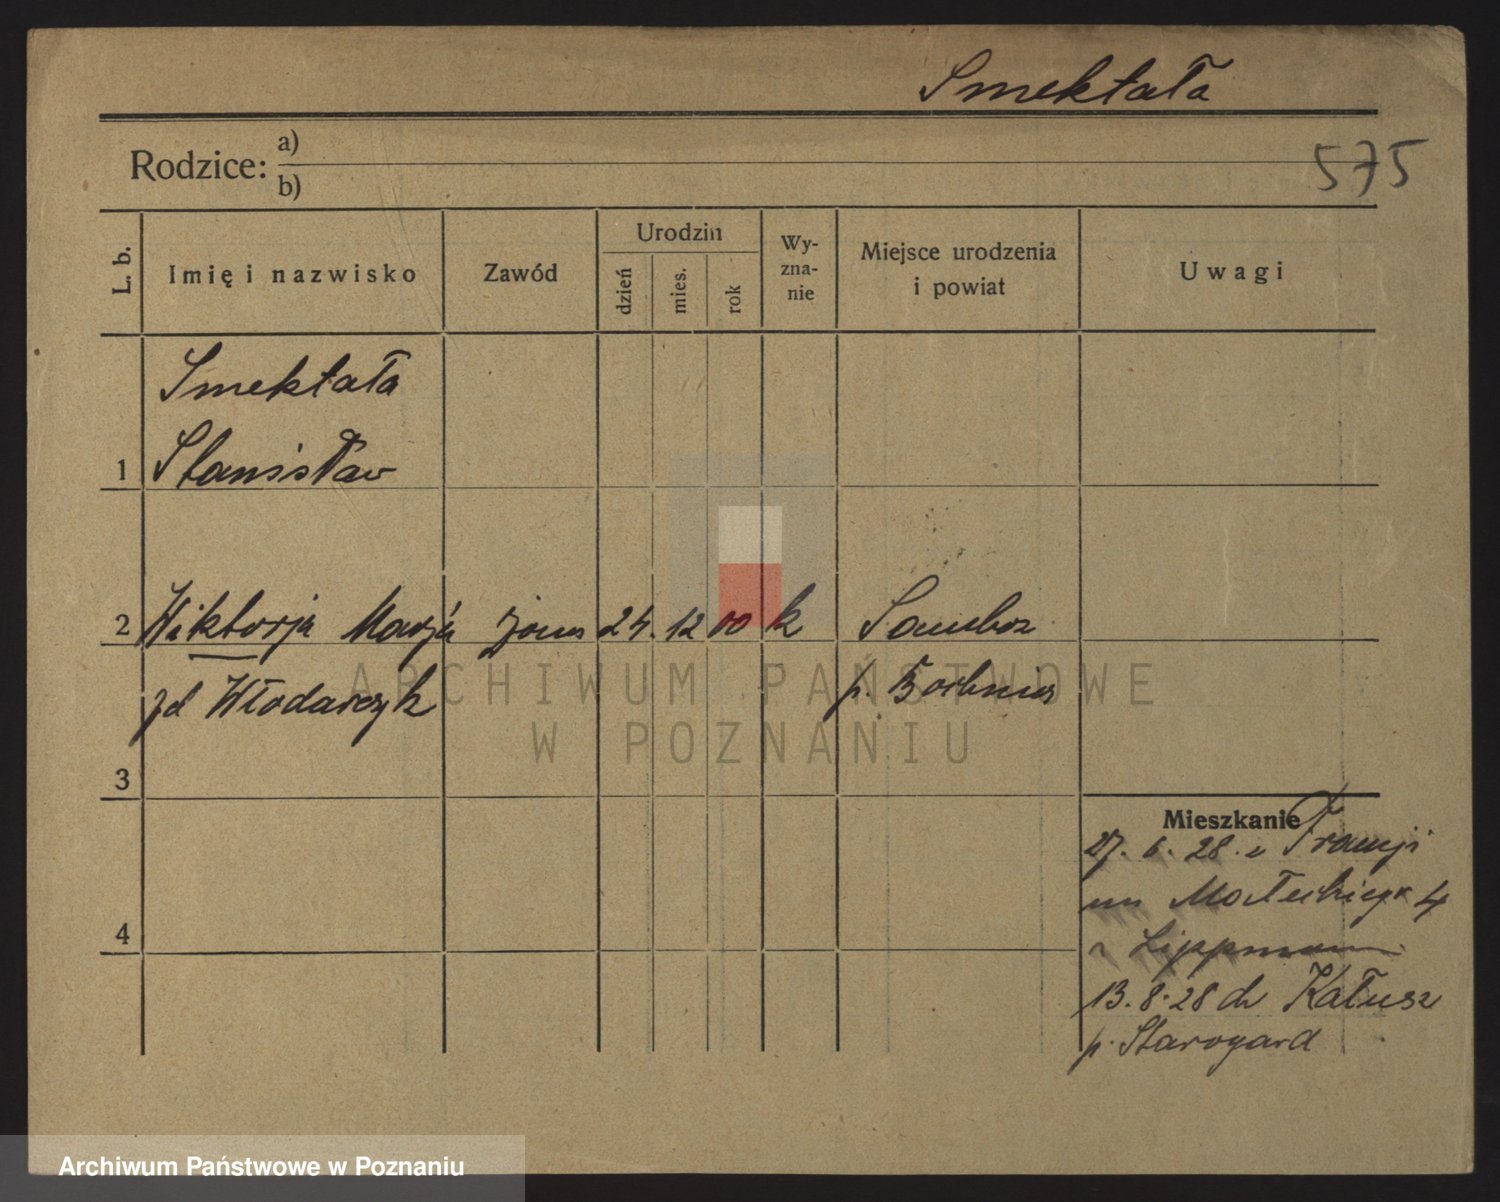 Smektała
Rodzice: a)
b)
575
L. b.
Imię i nazwisko
Zawód
Urodzin
dzień
mies.
rok
Wy-
zna-
nie
Miejsce urodzenia
i powiat
Uwagi
Smektała
1 Stanisław
2 Wiktorja Marja żona 24. 12 00 k
zd Włodarczyk p.
3
Mieszkanie
27. 6. 28. z Francji
Małeckiego 4
Lippmann
4
13. 8. 28 do Kałusz
p. Starogard
ARCHIWUM PAŃSTWOWE
W POZNANIU
Archiwum Państwowe w Poznaniu